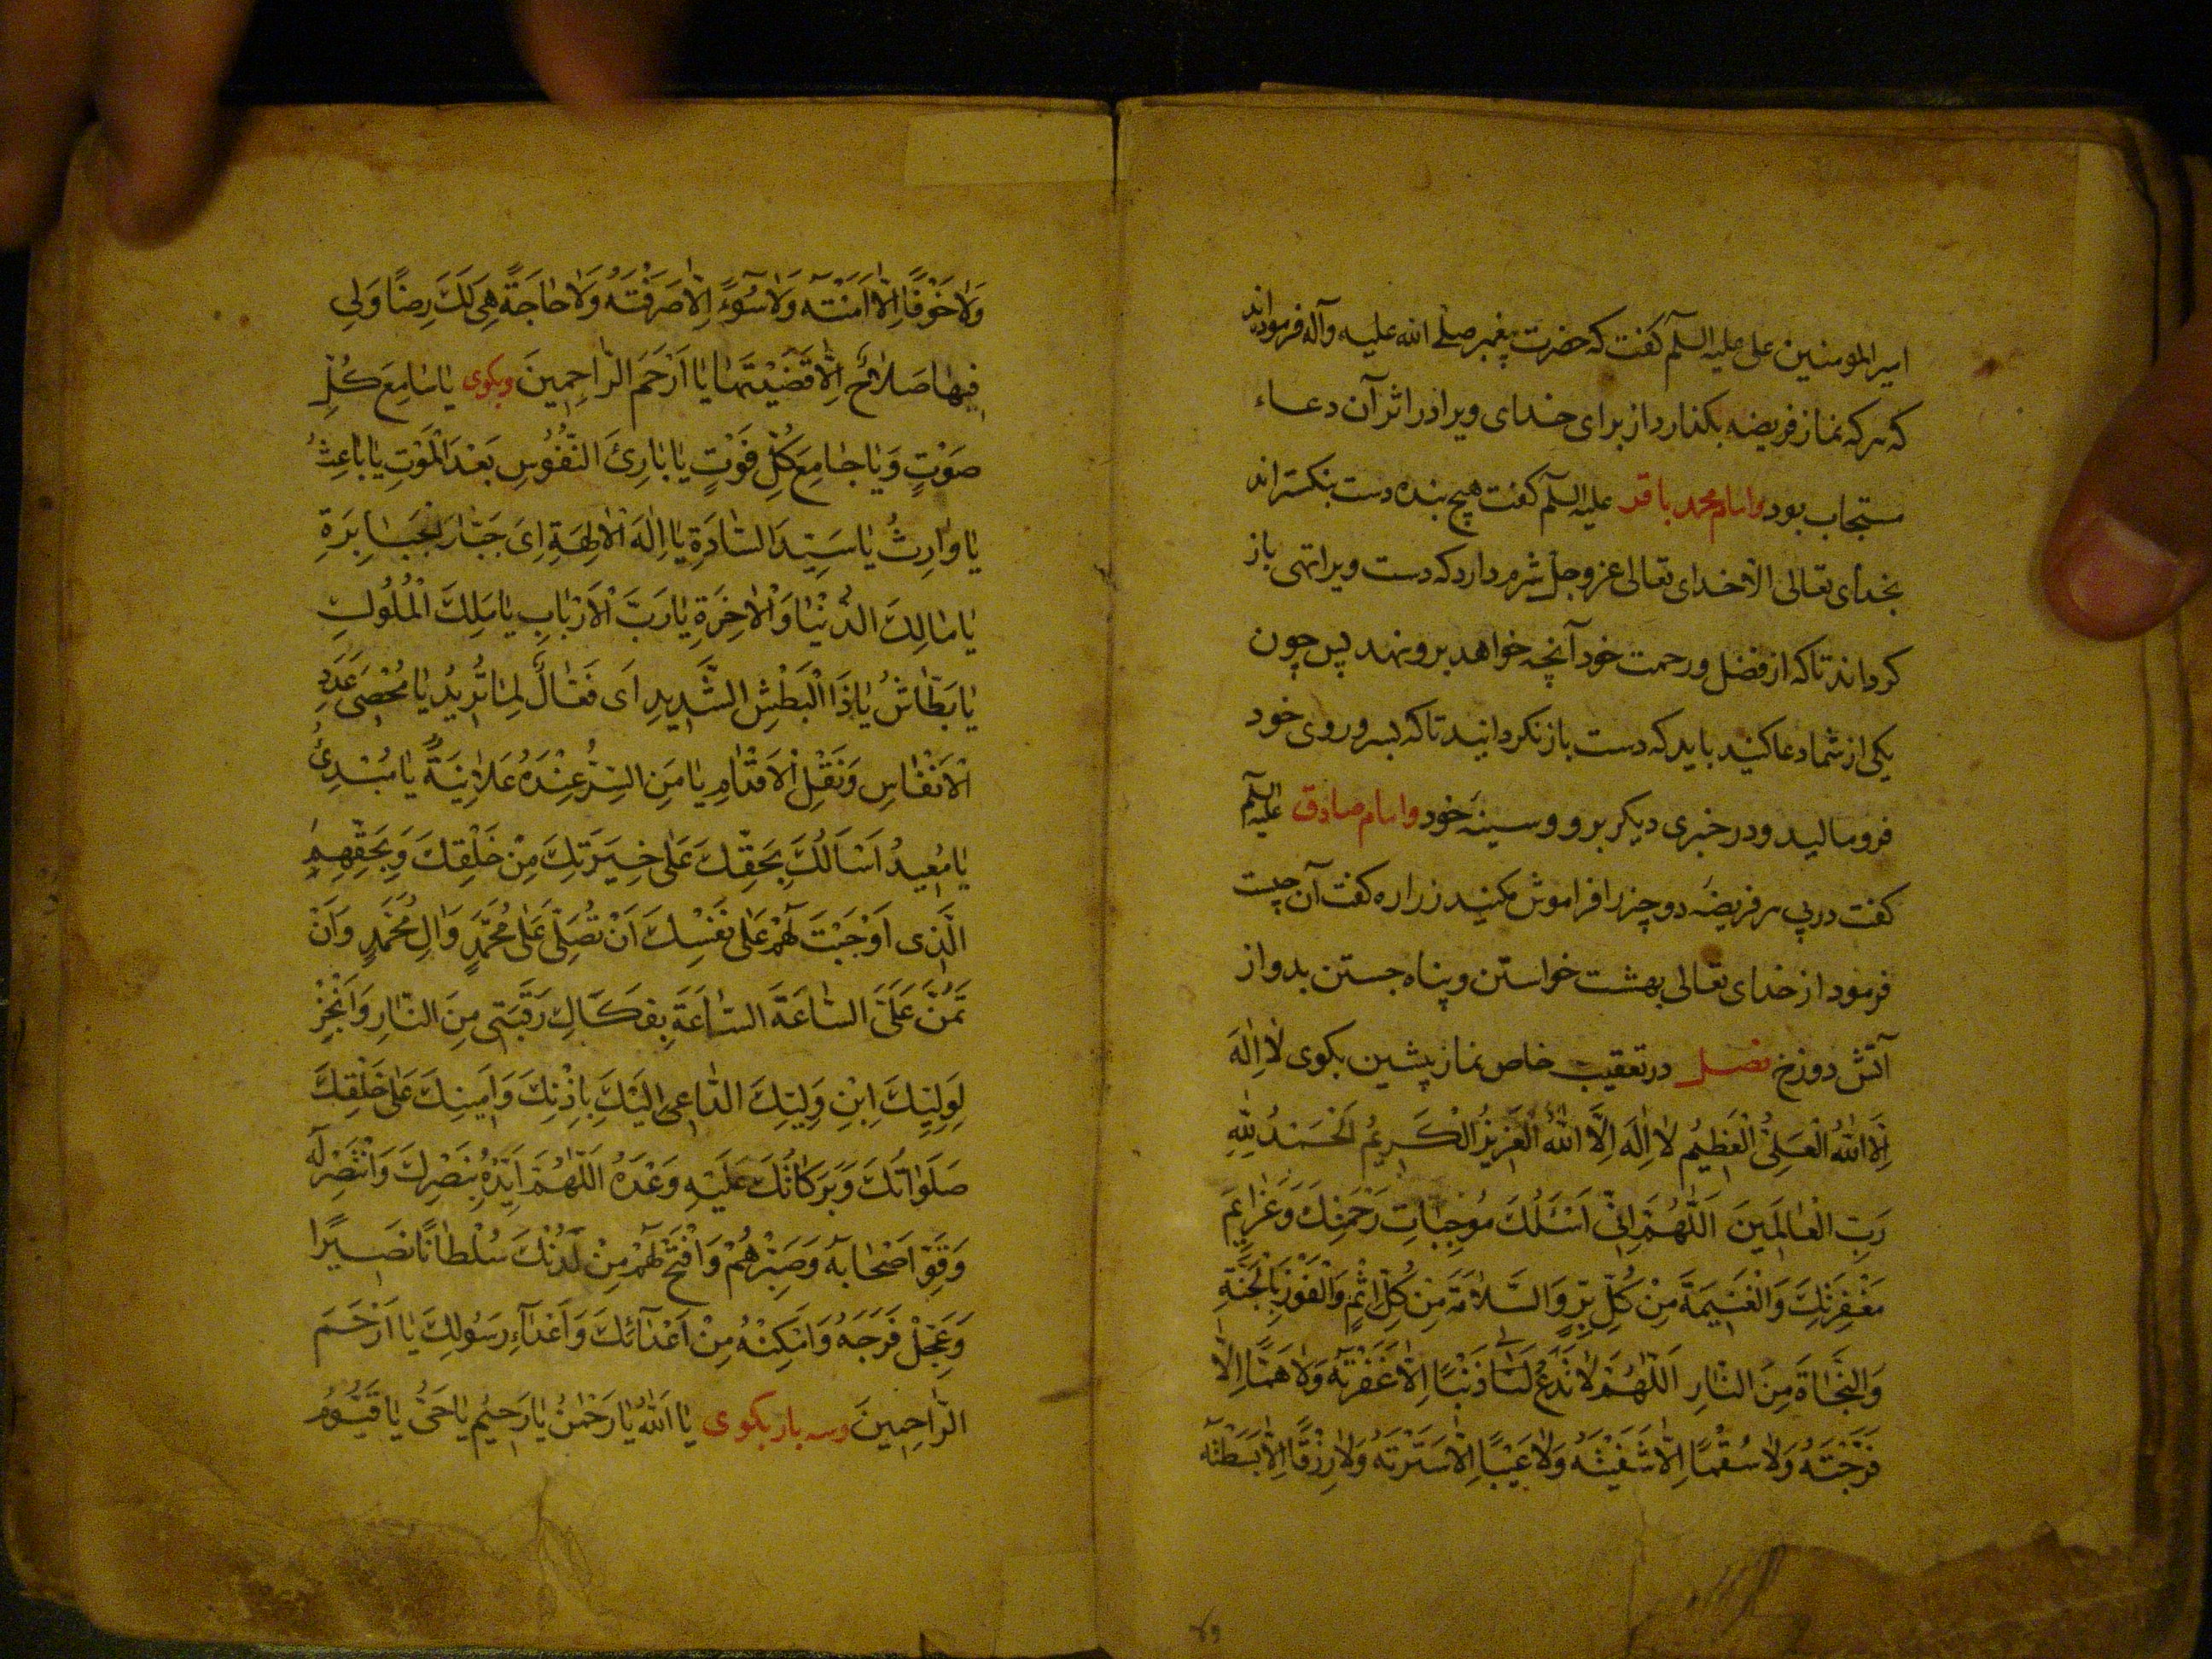 امیرالمومنین علی علیه السلم کفت که حضرت پیغمبر صلی الله علیه وآله فرموده اند
که هر که نماز فریضه بکذارد از برای خدای ویرا در اثر آن دعاء
مستجاب بود وامام محمد باقر علیه السلم کفت هیچ بنده دست بنکستراند
بخدای تعالی الا خدای تعالی عز وجل شرم دارد که دست ویرا تهی باز
کرداند تا که از فضل ورحمت خود آنچه خواهد برو نهد پس چون
یکی از شما دعا کنید باید که دست باز نکردانید تا که بسر وروی خود
فرو مالید ودر خبری دیکر برو وسینه خود وامام صادق علیه السلم
کفت در پی هر فریضه دو چیز را فراموش مکنید زراره کفت آن چیست
فرمود از خدای تعالی بهشت خواستن وپناه جستن بدو از
آتش دوزخ فصل در تعقیب خاص نماز پشین بکوی لَا اِلٰهَ
اِلَّا اللّٰهُ الْعَلِىُّ الْعَظِيمُ لَا اِلٰهَ اِلَّا اللّٰهُ الْعَزِيزُ الْكَرِيمُ اَلْحَمْدُ لِلّٰهِ
رَبِّ الْعَالَمِينَ اَللّٰهُمَّ اِنِّى اَسْئَلُكَ مُوجِبَاتِ رَحْمَتِكَ وَعَزَايِمَ
مَغْفِرَتِكَ وَالْغَنِيمَةَ مِنْ كُلِّ بِرٍّ وَالسَّلَامَةَ مِنْ كُلِّ اِثْمٍ وَالْفَوْزَ بِالْجَنَّةِ
وَالنَّجَاةَ مِنَ النَّارِ اَللّٰهُمَّ لَا تَدَعْ لَنَا ذَنْبًا اِلَّا غَفَرْتَهُ وَلَا هَمًّا اِلَّا
فَرَّجْتَهُ وَلَا سُقْمًا اِلَّا شَفَيْتَهُ وَلَا عَيْبًا اِلَّا سَتَرْتَهُ وَلَا رِزْقًا اِلَّا بَسَطْتَهُ
وَلَا خَوْفًا اِلَّا اَمَنْتَهُ وَلَا سُوءً اِلَّا صَرَفْتَهُ وَلَا حَاجَةً هِىَ لَكَ رِضًا وَلِى
فِيهَا صَلَاحٌ اِلَّا قَضَيْتَهَا يَا اَرْحَمَ الرَّاحِمِينَ وبکوی يَا سَامِعَ كُلِّ
صَوْتٍ وَيَا جَامِعَ كُلِّ فَوْتٍ يَا بَارِئَ النُّفُوسِ بَعْدَ الْمَوْتِ يَا بَاعِثُ
يَا وَارِثُ يَا سَيِّدَ السَّادَةِ يَا اِلٰهَ الْاٰلِهَةِ اِىَ جَبَّارَ الْجَبَابِرَةِ
يَا مَالِكَ الدُّنْيَا وَالْاٰخِرَةِ يَا رَبَّ الْاَرْبَابِ يَا مَلِكَ الْمُلُوكِ
يَا بَطَّاشُ يَا ذَا الْبَطْشِ الشَّدِيدِ اَى فَعَّالٌ لِمَا تُرِيدُ يَا مُحْصِىَ عَدَدِ
الْاَنْفَاسِ وَنَقْلِ الْاَقْدَامِ يَا مَنِ السِّرُّ عِنْدَهُ عَلَانِيَةٌ يَا مُبْدِئُ
يَا مُعِيدُ اَسْاَلُكَ بِحَقِّكَ عَلٰى خِيَرَتِكَ مِنْ خَلْقِكَ وَبِحَقِّهِمْ
الَّذِى اَوْجَبْتَ لَهُمْ عَلٰى نَفْسِكَ اَنْ تُصَلِّىَ عَلٰى مُحَمَّدٍ وَاٰلِ مُحَمَّدٍ وَاَنْ
تَمُنَّ عَلَىَّ السَّاعَةَ السَّاعَةَ بِفَكَاكِ رَقَبَتِى مِنَ النَّارِ وَاَنْجِزْ
لِوَلِيِّكَ اِبْنِ وَلِيِّكَ الدَّاعِى اِلَيْكَ بِاِذْنِكَ وَاَمِينِكَ عَلٰى خَلْقِكَ
صَلَوَاتُكَ وَبَرَكَاتُكَ عَلَيْهِ وَعْدَهُ اَللّٰهُمَّ اَيِّدْهُ بِنَصْرِكَ وَانْتَصِرْ لَهُ
وَقَوِّ اَصْحَابَهُ وَصَبِّرْهُمْ وَافْتَحْ لَهُمْ مِنْ لَدُنْكَ سُلْطَانًا نَصِيرًا
وَعَجِّلْ فَرَجَهُ وَاَمْكِنْهُ مِنْ اَعْدَآئِكَ وَاَعْدَآءِ رَسُولِكَ يَا اَرْحَمَ
الرَّاحِمِينَ وسه بار بکوی يَا اَللّٰهُ يَا رَحْمٰنُ يَا رَحِيمُ يَا حَىُّ يَا قَيُّومُ